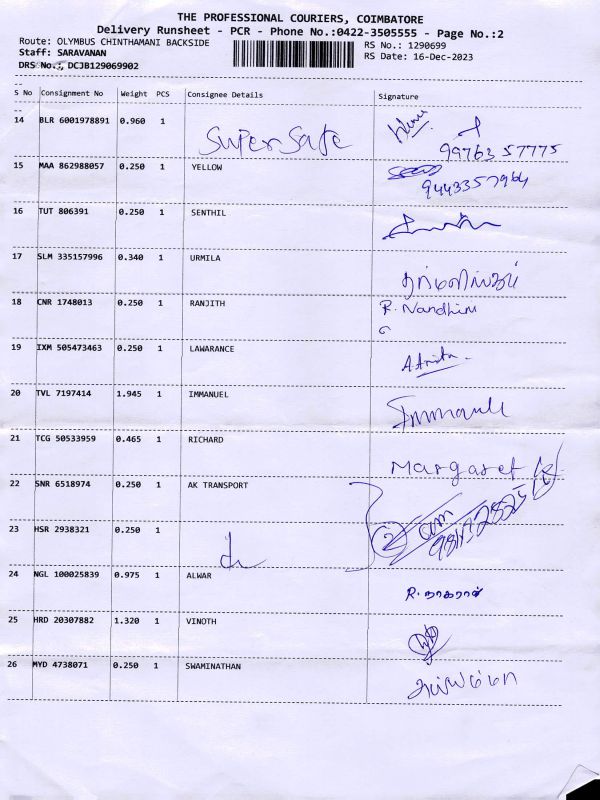 THE PROFESSIONAL COURIERS, COIMBATORE
Delivery Runsheet - PCR - Phone No.:0422-3505555 - Page No.:2
Route: OLYMBUS CHINTHAMANI BACKSIDE RS No.: 1290699
Staff: SARAVANAN RS Date: 16-Dec-2023
DRS No.:, DCJB129069902
S No Consignment No Weight PCS Consignee Details Signature
14 BLR 6001978891 0.960 1 Super Safe
99763 57775
15 MAA 862988057 0.250 1 YELLOW
9443357964
16 TUT 806391 0.250 1 SENTHIL
17 SLM 335157996 0.340 1 URMILA
18 CNR 1748013 0.250 1 RANJITH R. Nandhini
19 IXM 505473463 0.250 1 LAWARANCE
20 TVL 7197414 1.945 1 IMMANUEL Immanuel
21 TCG 50533959 0.465 1 RICHARD Margaret
22 SNR 6518974 0.250 1 AK TRANSPORT
23 HSR 2938321 0.250 1 2
24 NGL 100025839 0.975 1 ALWAR R. நாகராஜ்
25 HRD 20307882 1.320 1 VINOTH
26 MYD 4738071 0.250 1 SWAMINATHAN